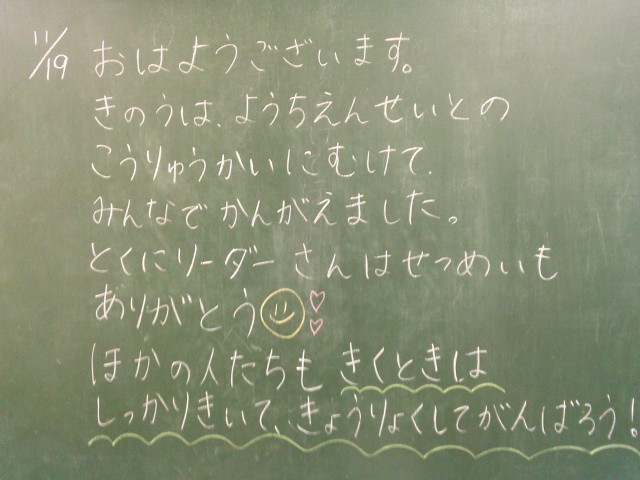 11/19
おはようございます。
きのうは、ようちえんせいとの
こうりゅうかいにむけて、
みんなでかんがえました。
とくにリーダーさんはせつめいも
ありがとう
ほかの人たちもきくときは
しっかりきいて、きょうりょくしてがんばろう!